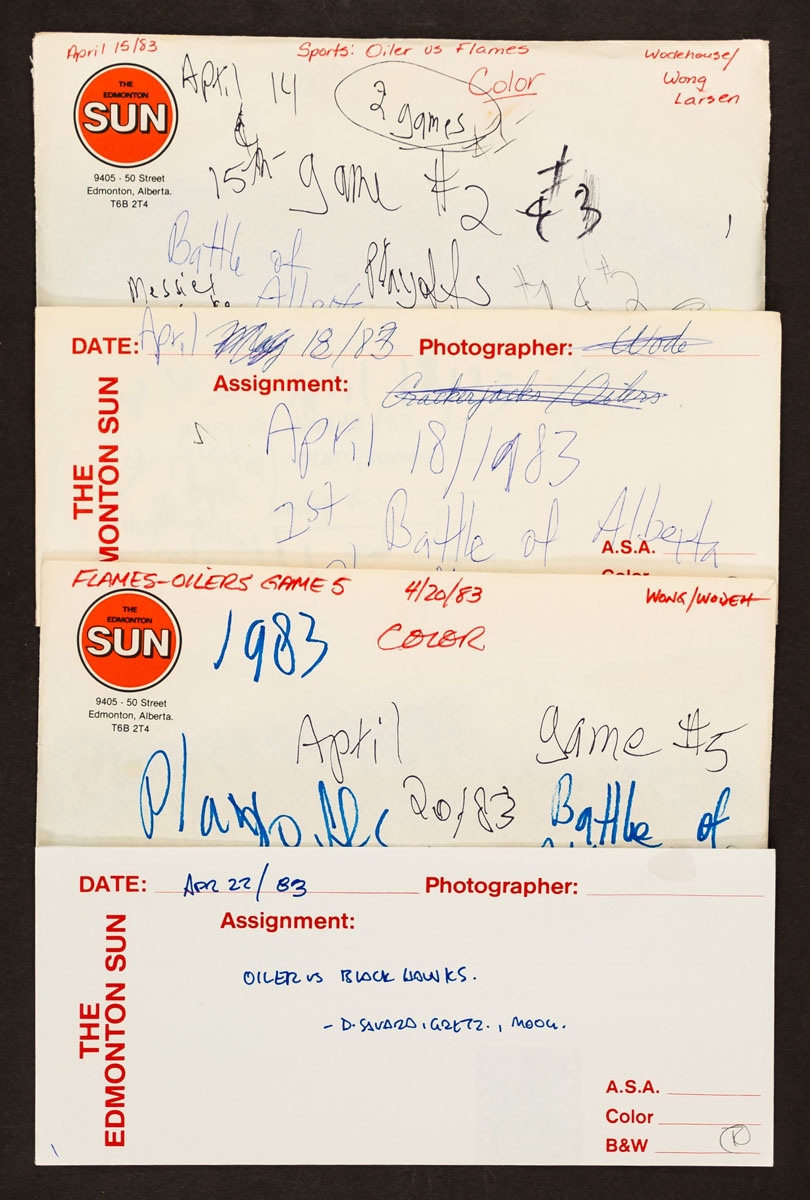 April 15/83
Sports: Oiler vs Flames
Wodehouse/
Wong
Larsen
Color
THE
EDMONTON
SUN
9405 - 50 Street
Edmonton, Alberta.
T6B 2T4
April 14
2 games
&
#1
15th game #2 & #3
Battle of
Playoffs #1 & #2
Messier
Alberta
DATE: April May 18/83 Photographer: Wode
Assignment: Crackerjacks/Oilers
April 18/1983
1st Battle of Alberta
THE
EDMONTON SUN
A.S.A.
Color
FLAMES-OILERS GAME 5 4/20/83 WONG/WODEH
THE
EDMONTON
SUN
9405 - 50 Street
Edmonton, Alberta.
T6B 2T4
1983
COLOR
April game #5
Playoffs 20/83 Battle of
DATE: APR 22/83 Photographer:
Assignment:
OILER VS BLACK HAWKS.
- D. SAVARD, GRETZ., MOOG.
THE
EDMONTON SUN
A.S.A.
Color
B&W